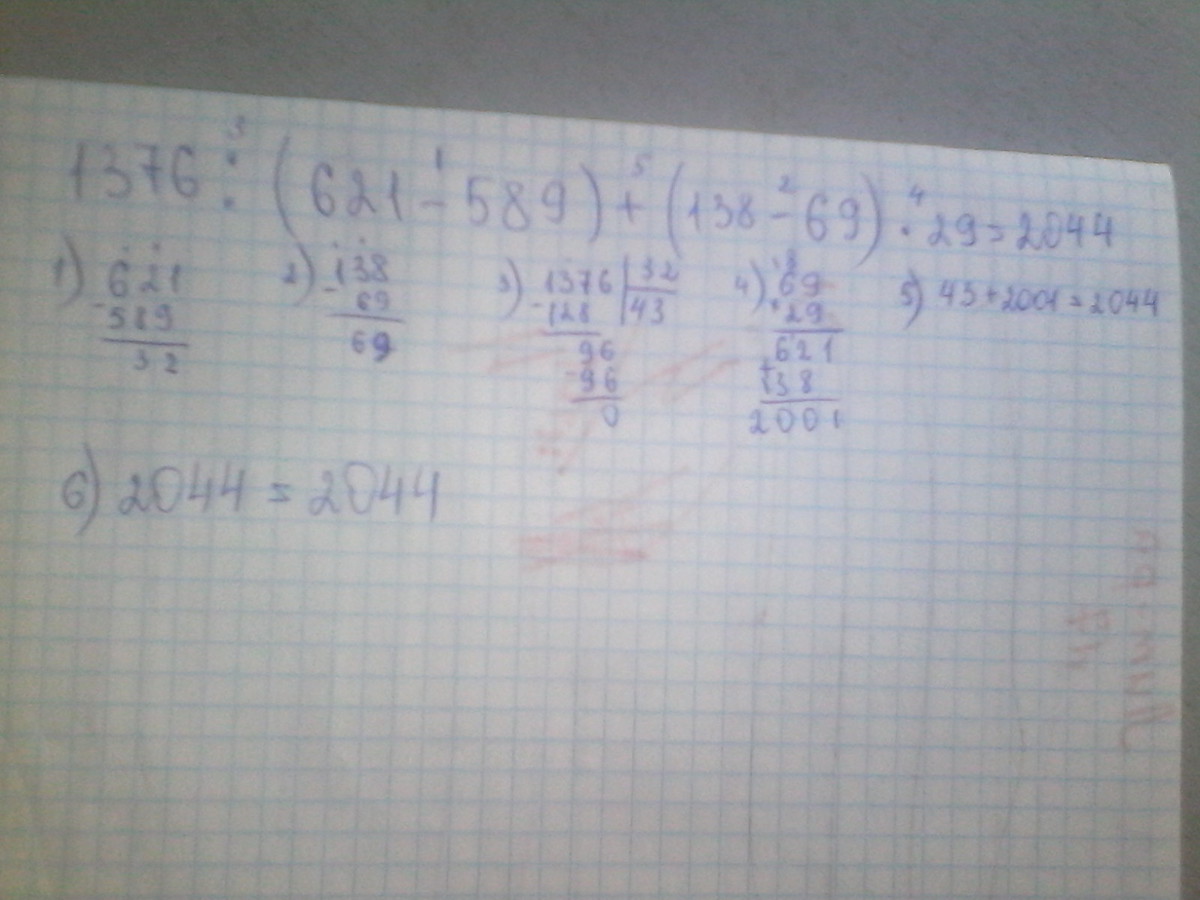 1376 : (621 - 589) + (138 - 69) · 29 = 2044
3 1 5 2 4
1) 621 2) 138 3) 1376 | 32 4) 69 5) 43 + 2001 = 2044
- 589 - 69 - 128 | 43 · 29
32 69 96 621
- 96 + 138
0 2001
6) 2044 = 2044